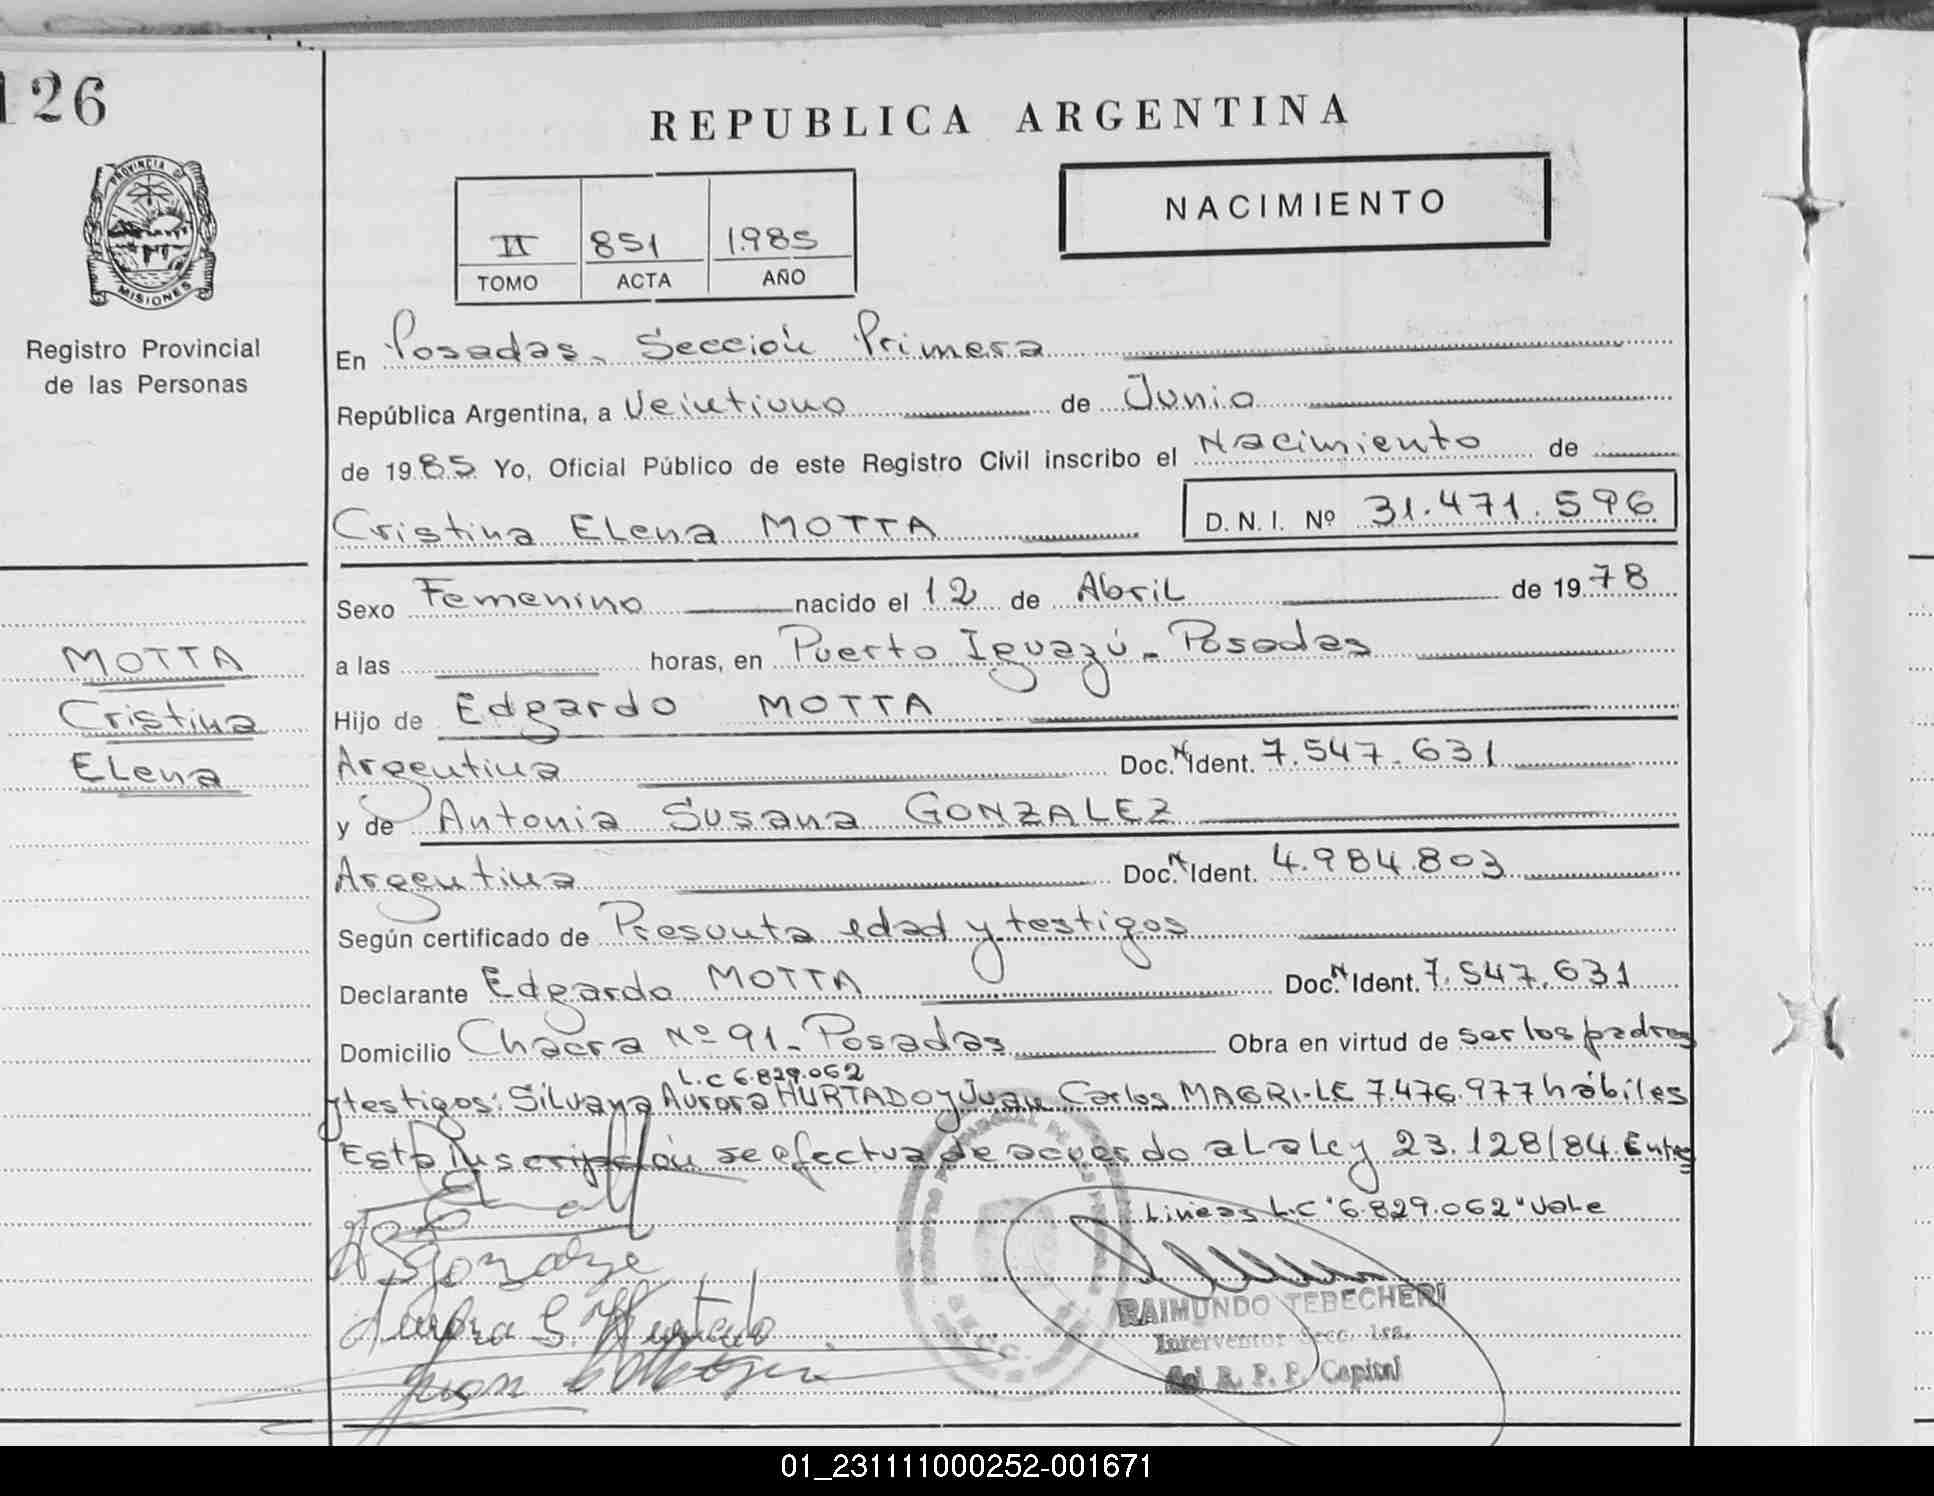 126
REPUBLICA ARGENTINA
PROVINCIA D
MISIONES
Registro Provincial
de las Personas
NACIMIENTO
II 851 1.985
TOMO ACTA AÑO
En Posadas. Sección Primera
República Argentina, a Veintiuno de Junio
de 1985 Yo, Oficial Público de este Registro Civil inscribo el Nacimiento de
Cristina Elena MOTTA D. N. I. Nº 31.471.596
Sexo Femenino nacido el 12 de Abril de 1978
MOTTA
Cristina
Elena
a las horas, en Puerto Iguazú - Posadas
Hijo de Edgardo MOTTA
Argentina Doc. N Ident. 7.547.631
y de Antonia Susana GONZALEZ
Argentina Doc. N Ident. 4.984.803
Según certificado de Presunta edad y testigos
Declarante Edgardo MOTTA Doc. N Ident. 7.547.631
Domicilio Chacra Nº 91 - Posadas Obra en virtud de ser los padres
L.C 6.829.062
y testigos: Silvana Aurora HURTADO y Juan Carlos MAGRI-LE 7.476.977 hábiles
Esta inscripción se efectua de acuerdo a la ley 23.128/84. Entre
Lineas L.C "6.829.062" Vale
Aurora S. Hurtado
Juan
RAIMUNDO TEBECHERI
Interventor Secc. 1ra.
R. P. P. Capital
01_231111000252-001671